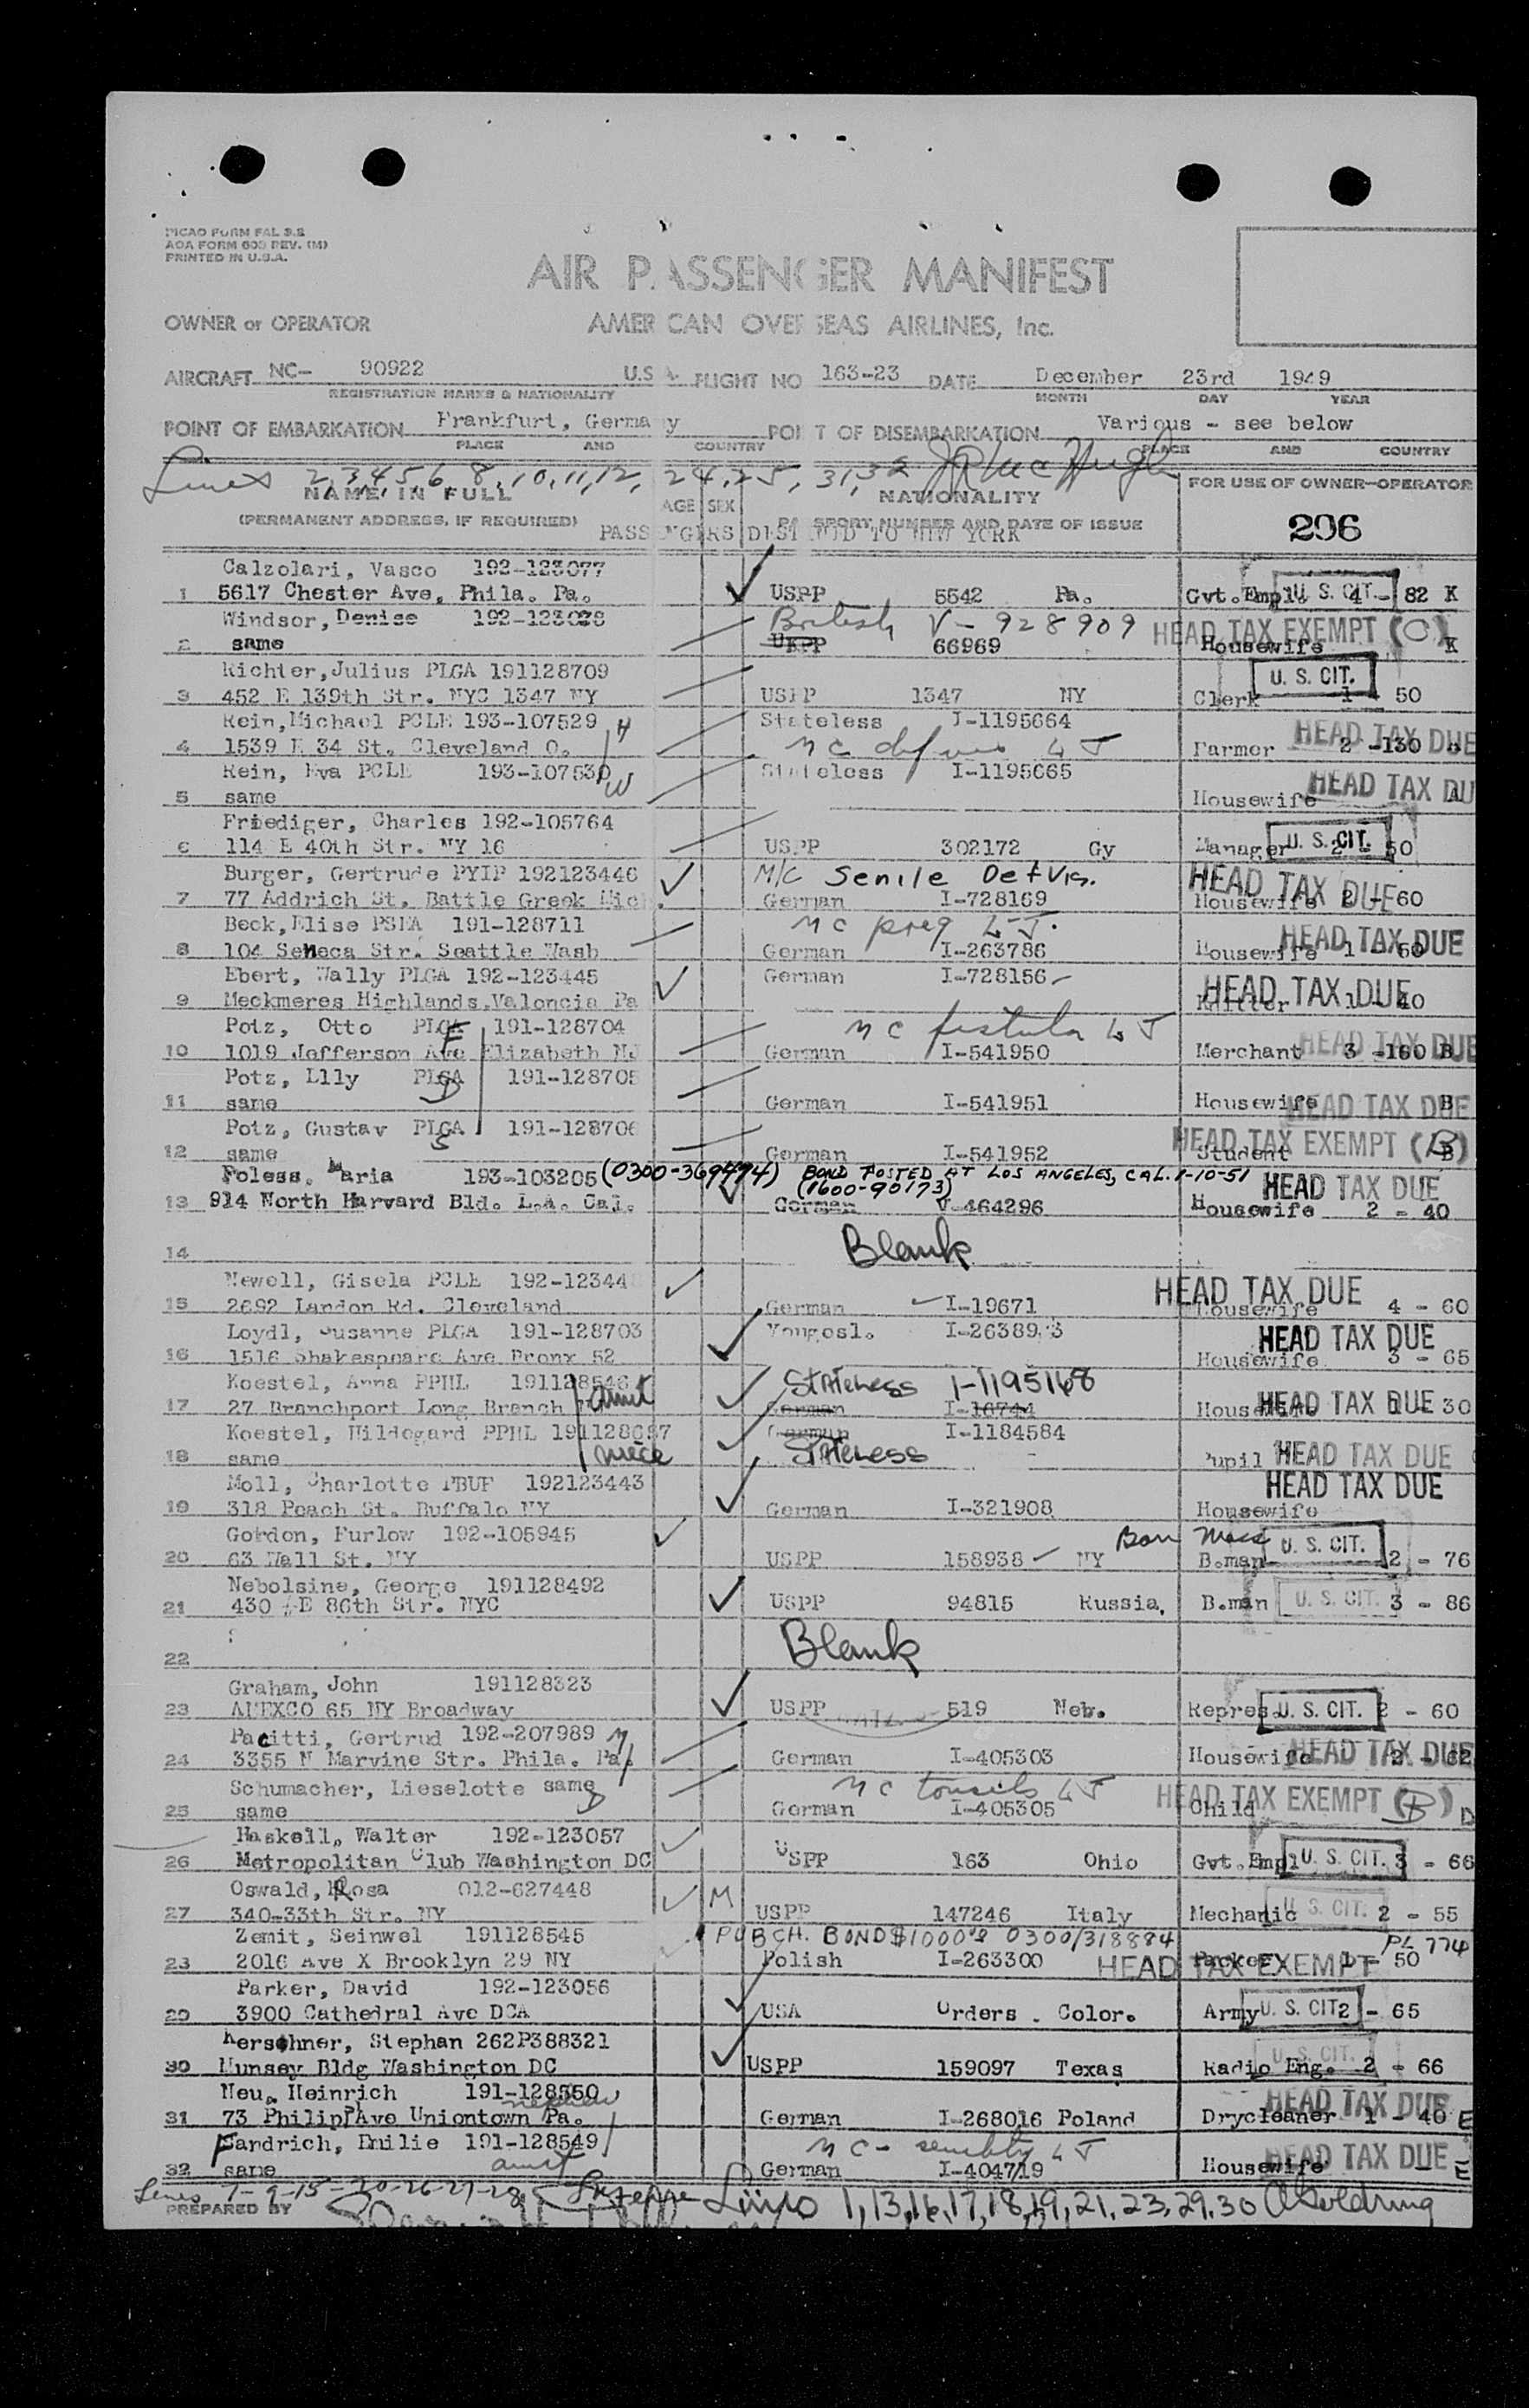 PICAO FORM FAL 3.2
AOA FORM 603 REV. (M)
PRINTED IN U.S.A.
AIR PASSENGER MANIFEST
OWNER or OPERATOR AMERICAN OVERSEAS AIRLINES, Inc.
AIRCRAFT NC- 90922 U.S.A. FLIGHT NO 163-23 DATE December 23rd 1949
REGISTRATION MARKS & NATIONALITY MONTH DAY YEAR
POINT OF EMBARKATION Frankfurt, Germany POINT OF DISEMBARKATION Various - see below
PLACE AND COUNTRY PLACE AND COUNTRY
Lines 2,3,4,5,6,8,10,11,12, 24,25, 31,32 JP McHugh
NAME IN FULL AGE SEX NATIONALITY FOR USE OF OWNER-OPERATOR
(PERMANENT ADDRESS, IF REQUIRED) PASSPORT NUMBER AND DATE OF ISSUE
PASSENGERS DESTINED TO NEW YORK 206
Calzolari, Vasco 192-123077
1 5617 Chester Ave, Phila. Pa. USPP 5542 Pa. Gvt.Empl. U. S. CIT. 4 - 82 K
Windsor, Denise 192-123078 British V-928909 HEAD TAX EXEMPT (C)
2 same UKPP 66969 Housewife K
Richter,Julius PLGA 191128709 U. S. CIT.
3 452 E 139th Str. NYC 1347 NY USPP 1347 NY Clerk 1 - 50
Rein,Michael PCLE 193-107529 H Stateless I-1195664 HEAD TAX DUE
4 1539 E 34 St. Cleveland O. Farmer 2 -130
Rein, Eva PCLE 193-107530 W Stateless I-1195665 HEAD TAX DU
5 same Housewife A
Friediger, Charles 192-105764
6 114 E 40th Str. NY 16 USPP 302172 Gy Manager U. S. CIT. 2 - 50
Burger, Gertrude PYIP 192123446 M/C Senile Def Vis. HEAD TAX DUE
7 77 Addrich St. Battle Greek Mich. German I-728169 Housewife 2 - 60
Beck,Elise PSEA 191-128711 M C preg L J. HEAD TAX DUE
8 104 Seneca Str. Seattle Wash German I-263786 Housewife 1 - 60
Ebert, Wally PLGA 192-123445 German I-728156 HEAD TAX DUE
9 Meckmeres Highlands,Valencia Pa Knitter 1 - 40
Potz, Otto PLGA F 191-128704 M C fistula L J
10 1019 Jefferson Ave Elizabeth NJ German I-541950 Merchant 3 -160 B HEAD TAX DUE
Potz, Llly PLGA 191-128705
11 same German I-541951 Housewife B HEAD TAX DUE
Potz, Gustav PLGA S 191-128706 HEAD TAX EXEMPT (B)
12 same German I-541952 Student B
Poless, Maria 193-103205 (0300-369494) BOND POSTED AT LOS ANGELES, CAL. 1-10-51 HEAD TAX DUE
(1600-90173)
13 914 North Harvard Bld. L.A. Cal. German V-464296 Housewife 2 - 40
14 Blank
Newell, Gisela PCLE 192-12344 HEAD TAX DUE
15 2692 Landon Rd. Cleveland German I-19671 Housewife 4 - 60
Loydl, Susanne PLGA 191-128703 Yougosl. I-263893 HEAD TAX DUE
16 1516 Shakespeare Ave Bronx 52 Housewife 3 - 65
Koestel, Anna PPHL 191128546 aunt Stateless I-1195168
17 27 Branchport Long Branch German I-16744 Housewife HEAD TAX DUE 30
Koestel, Hildegard PPHL 191128687 niece German I-1184584
18 same Stateless Pupil HEAD TAX DUE
Moll, Charlotte PBUF 192123443 HEAD TAX DUE
19 318 Peach St. Buffalo NY German I-321908 Housewife
Gordon, Furlow 192-105945
20 63 Wall St. NY USPP 158938 NY B.man U. S. CIT. 2 - 76
Nebolsine, George 191128492
21 430 E 86th Str. NYC USPP 94815 Russia, B.man U. S. CIT. 3 - 86
22 Blank
Graham, John 191128323
23 AMEXCO 65 NY Broadway USPP 519 Neb. Repres. U. S. CIT. 2 - 60
Pacitti, Gertrud 192-207989 M
24 3355 N Marvine Str. Phila. Pa. German I-405303 Housewife 2 - 62 HEAD TAX DUE
Schumacher, Lieselotte same D M C tonsils L J HEAD TAX EXEMPT (B)
25 same German I-405305 Child D
Haskell, Walter 192-123057
26 Metropolitan Club Washington DC USPP 163 Ohio Gvt.Empl U. S. CIT. 3 - 66
Oswald, Rosa 012-627448 M
27 340-33th Str. NY USPP 147246 Italy Mechanic U. S. CIT. 2 - 55
Zemit, Seinwel 191128545 PUB CH. BOND $1000 0300/318884 PL 774
28 2016 Ave X Brooklyn 29 NY Polish I-263300 HEAD TAX EXEMPT Packer 1 - 50
Parker, David 192-123056
29 3900 Cathedral Ave DCA USA Orders . Color. Army U. S. CIT 2 - 65
Kerschner, Stephan 262P388321
30 Munsey Bldg Washington DC USPP 159097 Texas Radio Eng. 2 - 66 U. S. CIT.
Neu, Heinrich 191-128550 nephew
31 73 Philipp Ave Uniontown Pa. German I-268016 Poland Drycleaner 1 - 40 E HEAD TAX DUE
Fandrich, Emilie 191-128549 M C - senility L J
32 same aunt German I-404719 Housewife E HEAD TAX DUE
Lines 7-9-15-20-26-27-28 Lines 1,13,16,17,18,19,21,23,29,30 A Goldring
PREPARED BY